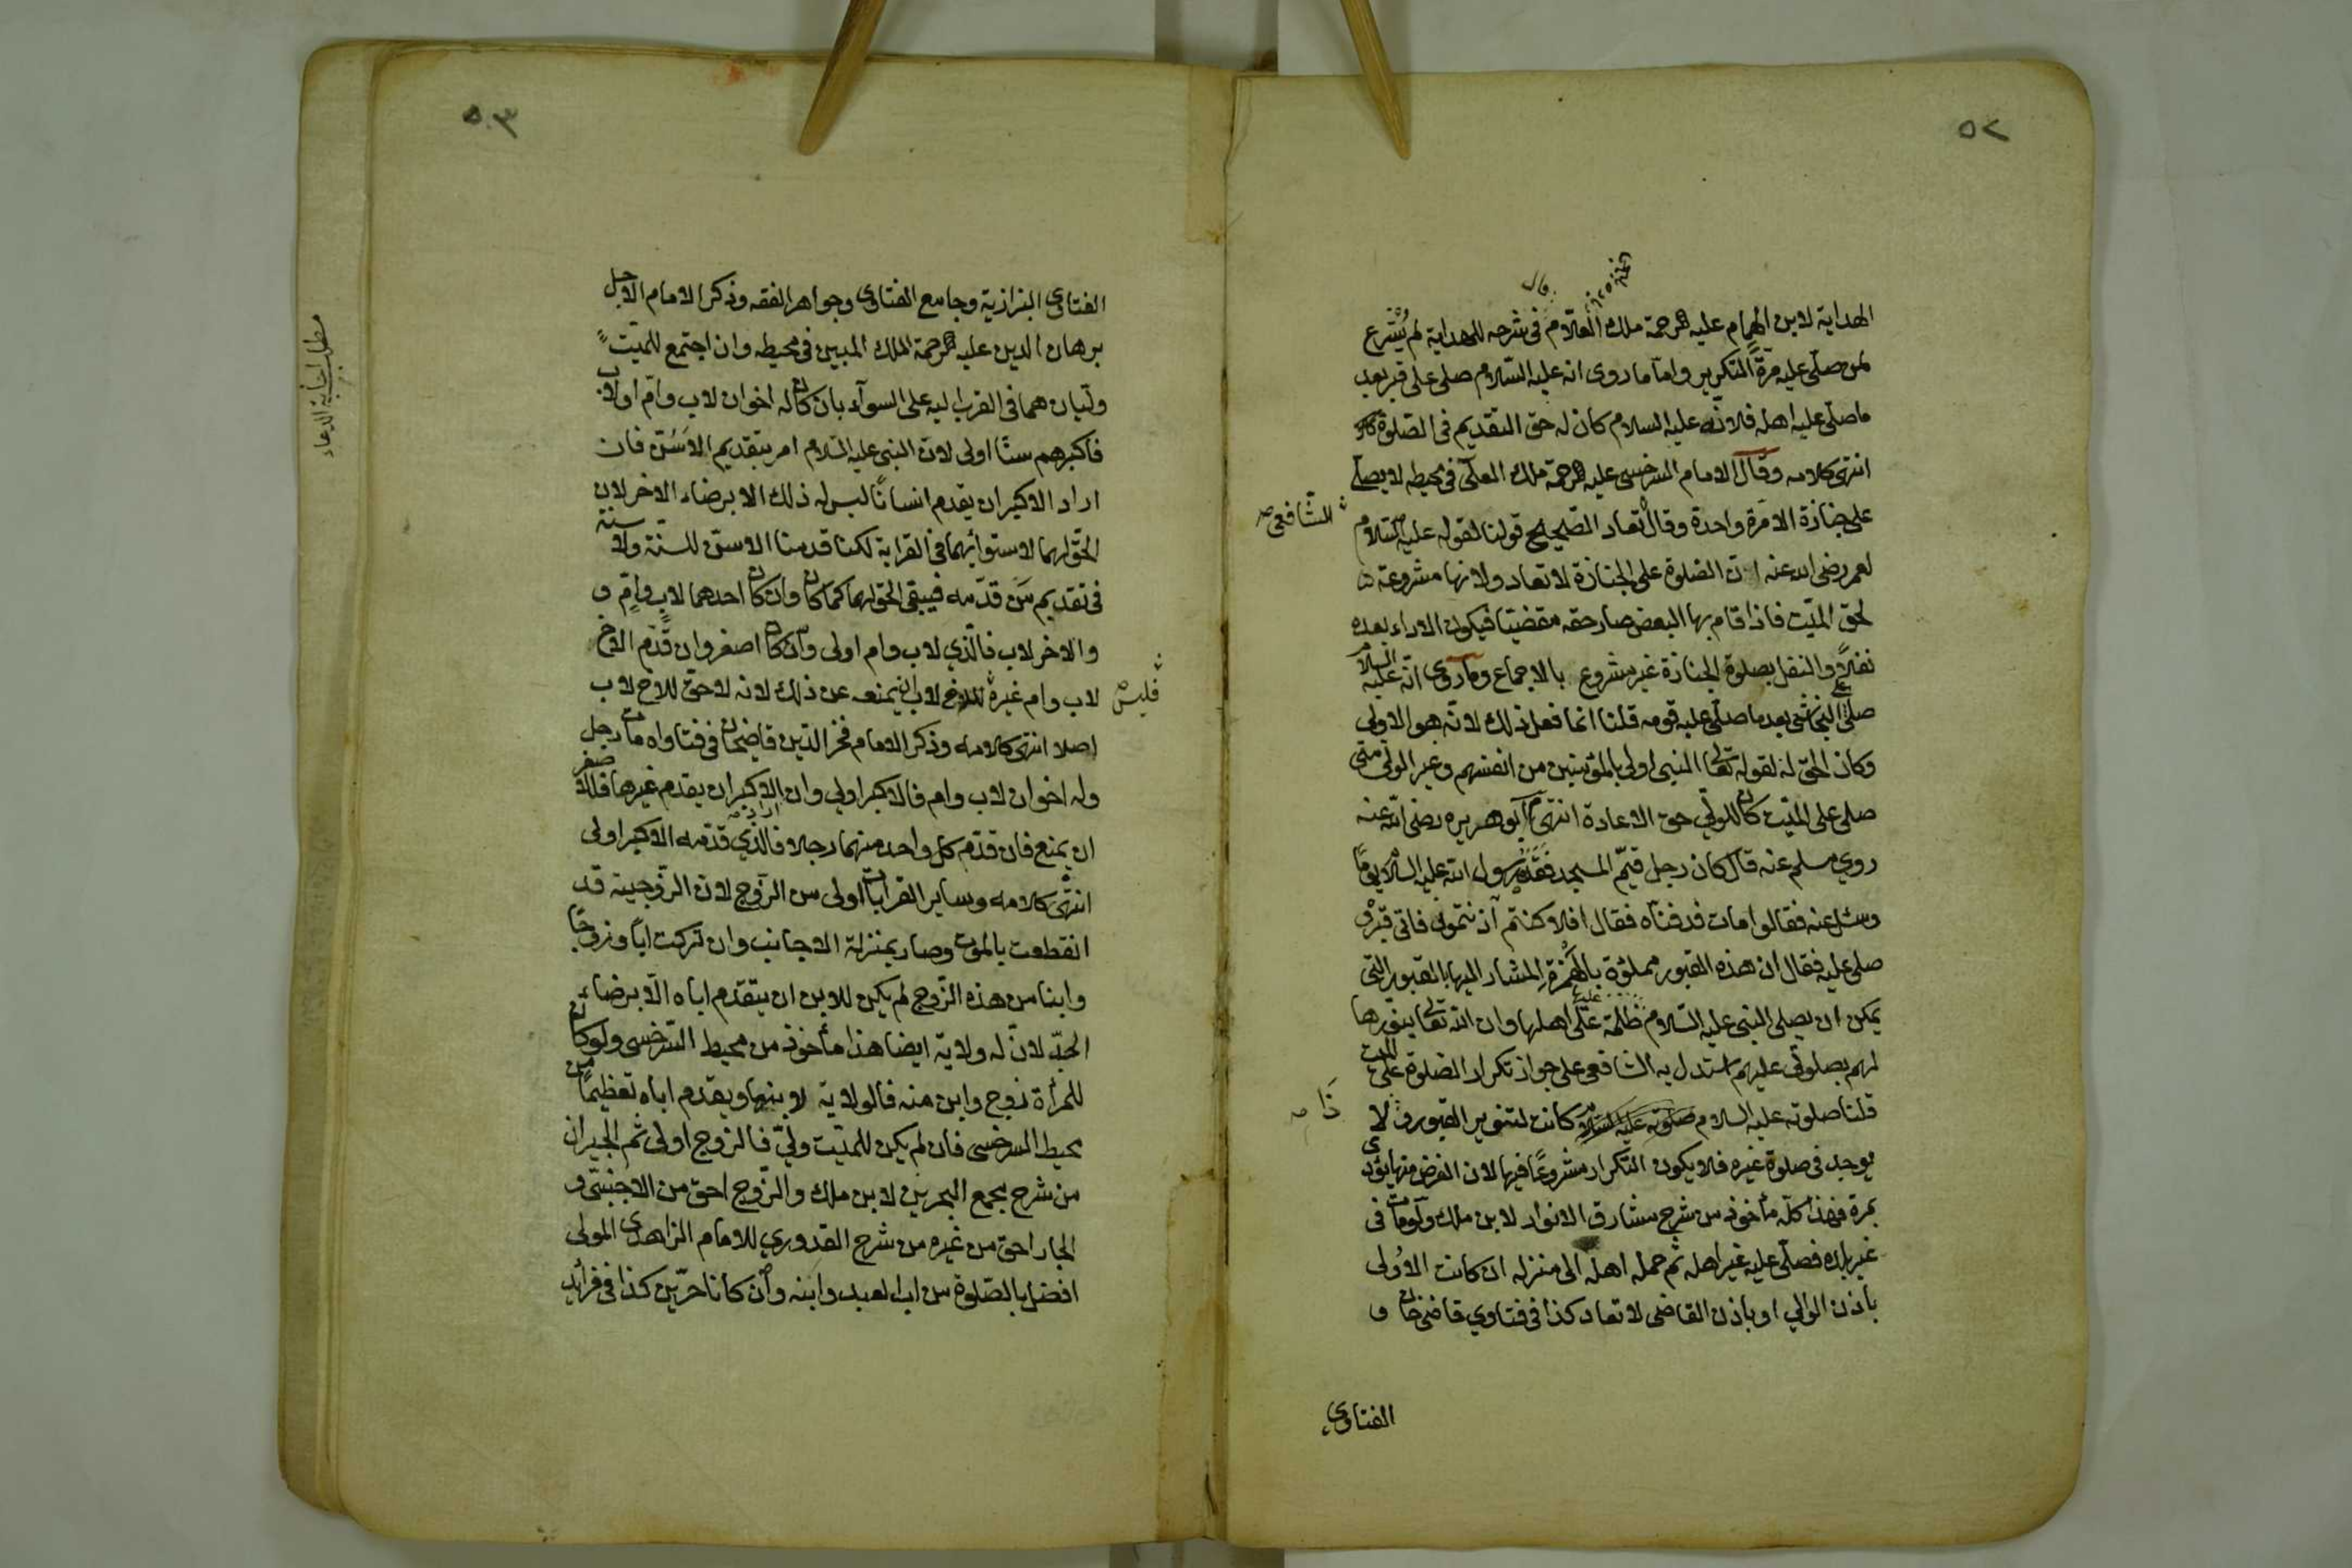 ٥٢
قال
الهداية لابن الهمام عليه الرحمة ملك العلام فى شرحه للهداية لم يُشرع
لمن صلّى عليه مرةً التكرير وامّا ما روى انه عليه السّلام صلى على قبر بعد
ما صلّى عليه اهله فلانّه عليه السلام كان له حق التقديم فى الصّلوة
انتهى كلامه وقال الامام السرخسى عليه الرحمة ملك المعلّى فى محيطه لا يصلّى
على جنازة الا مرة واحدة وقال تعاد الصّحيح قولنا لقوله عليه السّلام
الشّافعى صح
لعمر رضى الله عنه ان الصّلوة على الجنازة لا تعاد ولانها مشروعة
لحق الميّت فاذا قام بها البعض صار حقه مقضيّا فيكون الاداء بعده
نفلاً والنفل بصلوة الجنازة غير مشروع بالاجماع وما روى انّه عليه السلام
صلّى على النجاشى بعد ما صلّى عليه قومه قلنا انما فعل ذلك لانّه هو الاولى
وكان الحق له لقوله تعالى النبى اولى بالمؤمنين من انفسهم وغير الولى متى
صلى على الميّت كان للولّي حق الاعادة انتهى ابو هريره رضى الله عنه
روي مسلم عنه قال كان رجل قيّم المسجد ففقده رسول الله عليه السلام يومًا
وسئل عنه فقالوا مات فدفناه فقال افلا كنتم آذنتمونى فاتى قبره و
صلى عليه فقال ان هذه القبور مملوّة بالهمزة المشار اليها بالقبور التى
يمكن ان يصلى النبى عليه السّلام ظلمة على اهلها وان الله تعالى ينوّرها
لهم بصلوتى عليهم استدل به الشافعى على جواز تكرار الصّلوة على الميت
قلنا صلوته عليه السلام كانت لتنوير القبور لا
ذا صح
يوجد فى صلوة غيره فلا يكون التكرار مشروعًا فيها لان الفرض منها يؤدى
بمرة فهذا كلّه مأخوذ من شرح مشارق الانوار لابن ملك ولو مات فى
غير بلده فصلّى عليه غير اهله ثم حمله اهله الى منزله ان كانت الاُولى
باذن الوالي او باذن القاضى لا تعاد كذا فى فتاوي قاضى خان و
الفتاوى
٥٣
الفتاوى البزازية وجامع الفتاوى وجواهر الفقه وذكر الامام الاجل
برهان الدين عليه الرحمة الملك المبين فى محيطه وان اجتمع للميّت
وليّان هما فى القرب اليه على السوآء بان كان له اخوان لاب وامّ او لاب
فاكبرهم سنًا اولى لان النبى عليه السّلام امر بتقديم الاَسَنّ فان
اراد الاكبر ان يقدم انسانًا ليس له ذلك الا برضاء الاخر لان
الحق لهما لاستوائهما فى القرابة لكنا قدمنا الاسنّ للسنة ولا سنة
فى تقديم مَن قدّمه فيبقى الحق لهما كما كان وان كان احدهما لابٍ وامٍّ و
والاخر لاب فالّذي لاب وام اولى وان كان اصغر وان قدّم الاخ
لاب وام غيره للاخ لاب ان يمنعه عن ذلك لانه لا حقّ للاخ لاب
فليس صح
اصلا انتهى كلامه وذكر الامام فخر الدّين قاضيخان فى فتاواه مات رجل
وله اخوان لاب وام فالاكبر اولي وان الاكبر ان يقدم غيرها فللاصغر
اراد صح
ان يمنع فان قدّم كل واحد منهما رجلا فالّذي قدّمه الاكبر اولى
انتهى كلامه وساير القرابات اولى من الزّوج لان الزّوجية قد
انقطعت بالموت وصار بمنزلة الاجانب وان تركت ابًا وزوجًا
وابنا من هذه الزّوج لم يكن للابن ان يتقدم اباه الّا برضاء
الجدّ لانّ له ولاية ايضا هذا مأخوذ من محيط السّرخسى ولو كان
للمرأة زوج وابن منه فالولاية لابنها ويقدم اباه تعظيمًا من
محيط السرخسى فان لم يكن للميّت وليّ فالزوج اولى ثم الجيران
من شرح مجمع البحرين لابن ملك والزّوج احق من الاجنبىّ و
الجار احق من غيره من شرح القدوري للامام الزاهدى المولى
افضل بالصّلوة من اب العبد وابنه وان كانا حرّين كذا فى فرائد
مطلب اجابة الدعاء